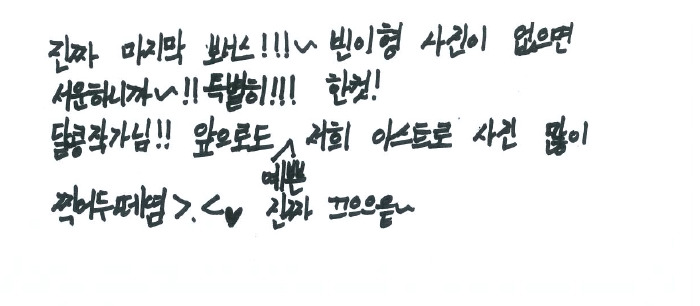 진짜 마지막 뽀너스!!!~ 빈이형 사진이 없으면
서운하니까~!! 특별히!!! 한컷!
달콩작가님!! 앞으로도 예쁜 저희 아스트로 사진 많이
찍어두떼염 >.<♥ 진짜 끄으으읕~